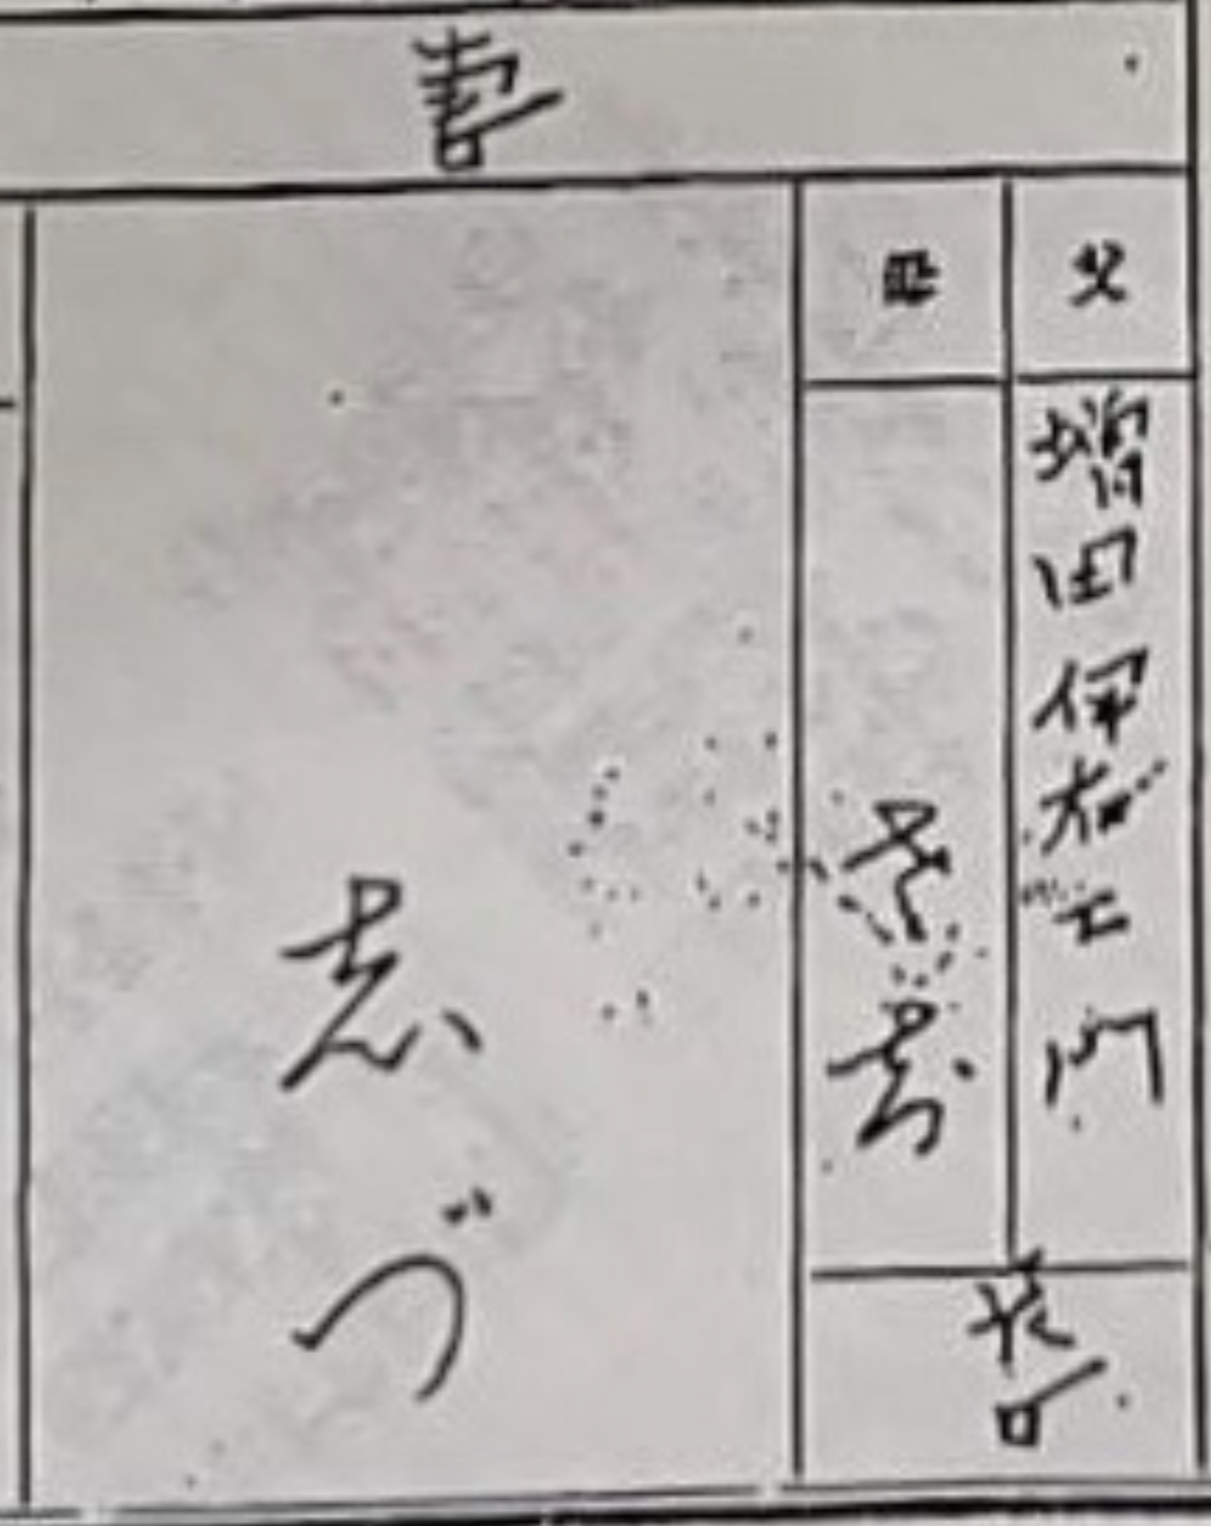 妻
父
増田伊エ門
母
長女
志づ